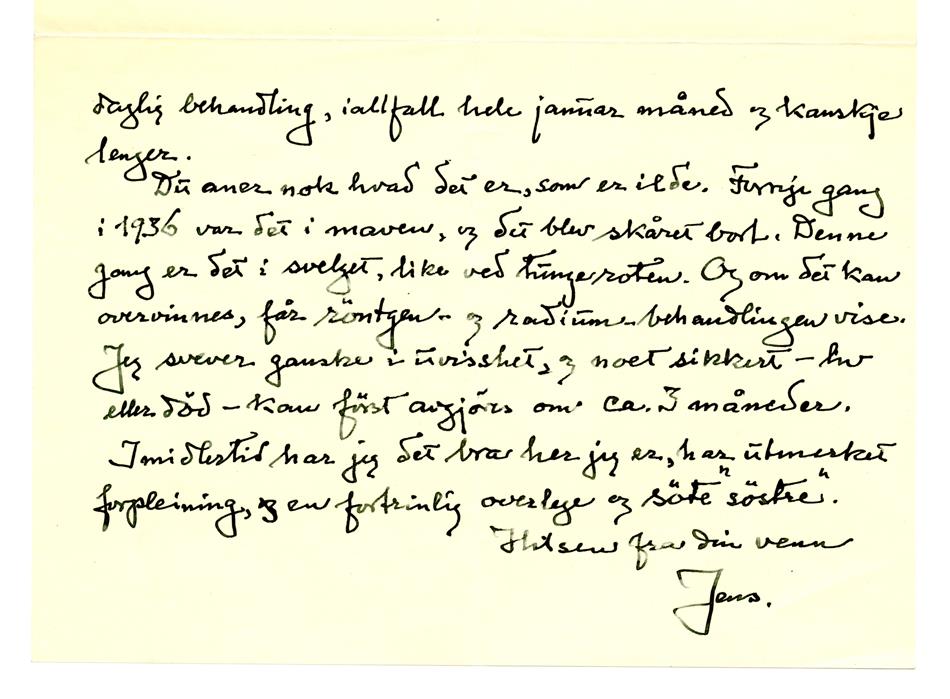 daglig behandling, iallfall hele januar måned og kanskje
lenger.
Du aner nok hvad det er, som er ilde. Forrije gang
i 1936 var det i maven, og det blev skåret bort. Denne
gang er det i svelget, like ved tungeroten. Og om det kan
overvinnes, får röntgen- og radium-behandlingen vise.
Jeg svever ganske i uvisshet, og noet sikkert – liv
eller död – kan först avgjörs om ca. 3 måneder.
Imidlertid har jeg det bra her jeg er, har utmerket
forpleining, og en fortrinlig overlege og söte "söstre".
Hilsen fra din venn
Jens.